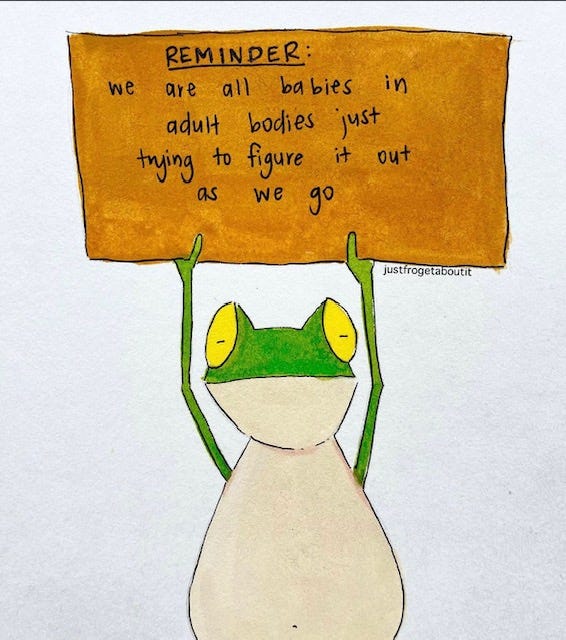 REMINDER:
we are all babies in
adult bodies just
trying to figure it out
as we go
justfrogetaboutit